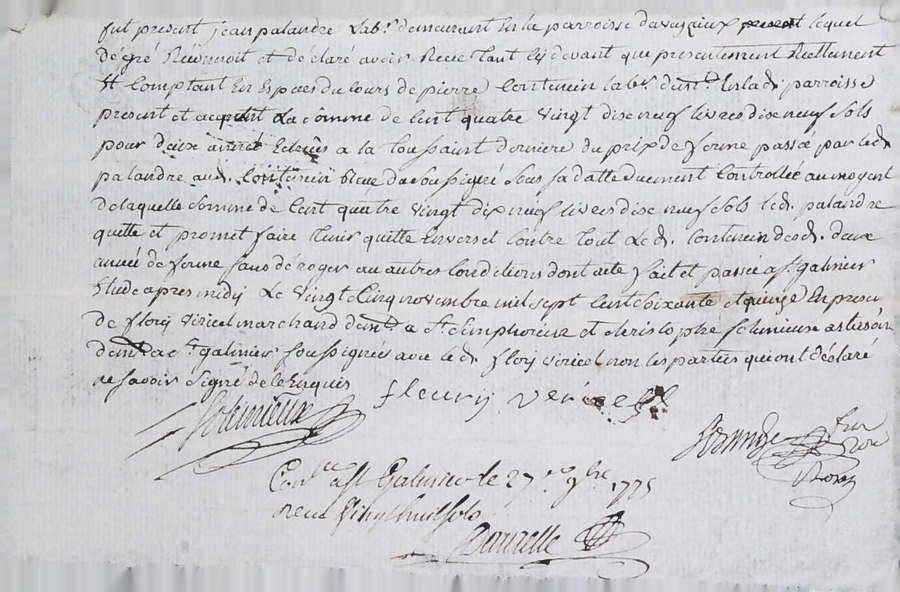 fut present jean palandre Lab.r demeurant En la parroisse davaizieux lequel
de gré Reconnoit et déclaré avoir Receu tant cy devant que presentement Reellement
Et Comptant En Espaces du Cours de pierre Couturier lab.r dem.t En lad parroisse
present et acceptant La somme de Cent quatre vingt dise neuf livres dise neuf sols
pour deux année Echues a la toussaint derniere du prix de ferme passée par led.
palandre aud. Couturier Receue du soussigné sous sa datte duement Controllée au moyent
de laquelle somme de Cent quatre vingt dix neuf livres dise neuf sols led. palandre
quitte et promet faire tenir quitte Envers et Contre tout Led. Couturier desd. deux
année de ferme sans déroger au autres Conditions dont acte fait et passée a s.t galmier
Etude apres midy Le vingt Cinq novembre mil sept Cent soixante et quinze En presen
de flory vericel marchand dem.t a S.t Simphorien et christophe solimieux artisan
dem.t a s.t galmier soussignés avec led. flory vericel non les parties qui ont déclaré
ne savoir signé de ce Enquis
fleury vericel
Solimieux
Con.lé a S.t Galmier le 27 9bre 1775
Receu vingt huit sols